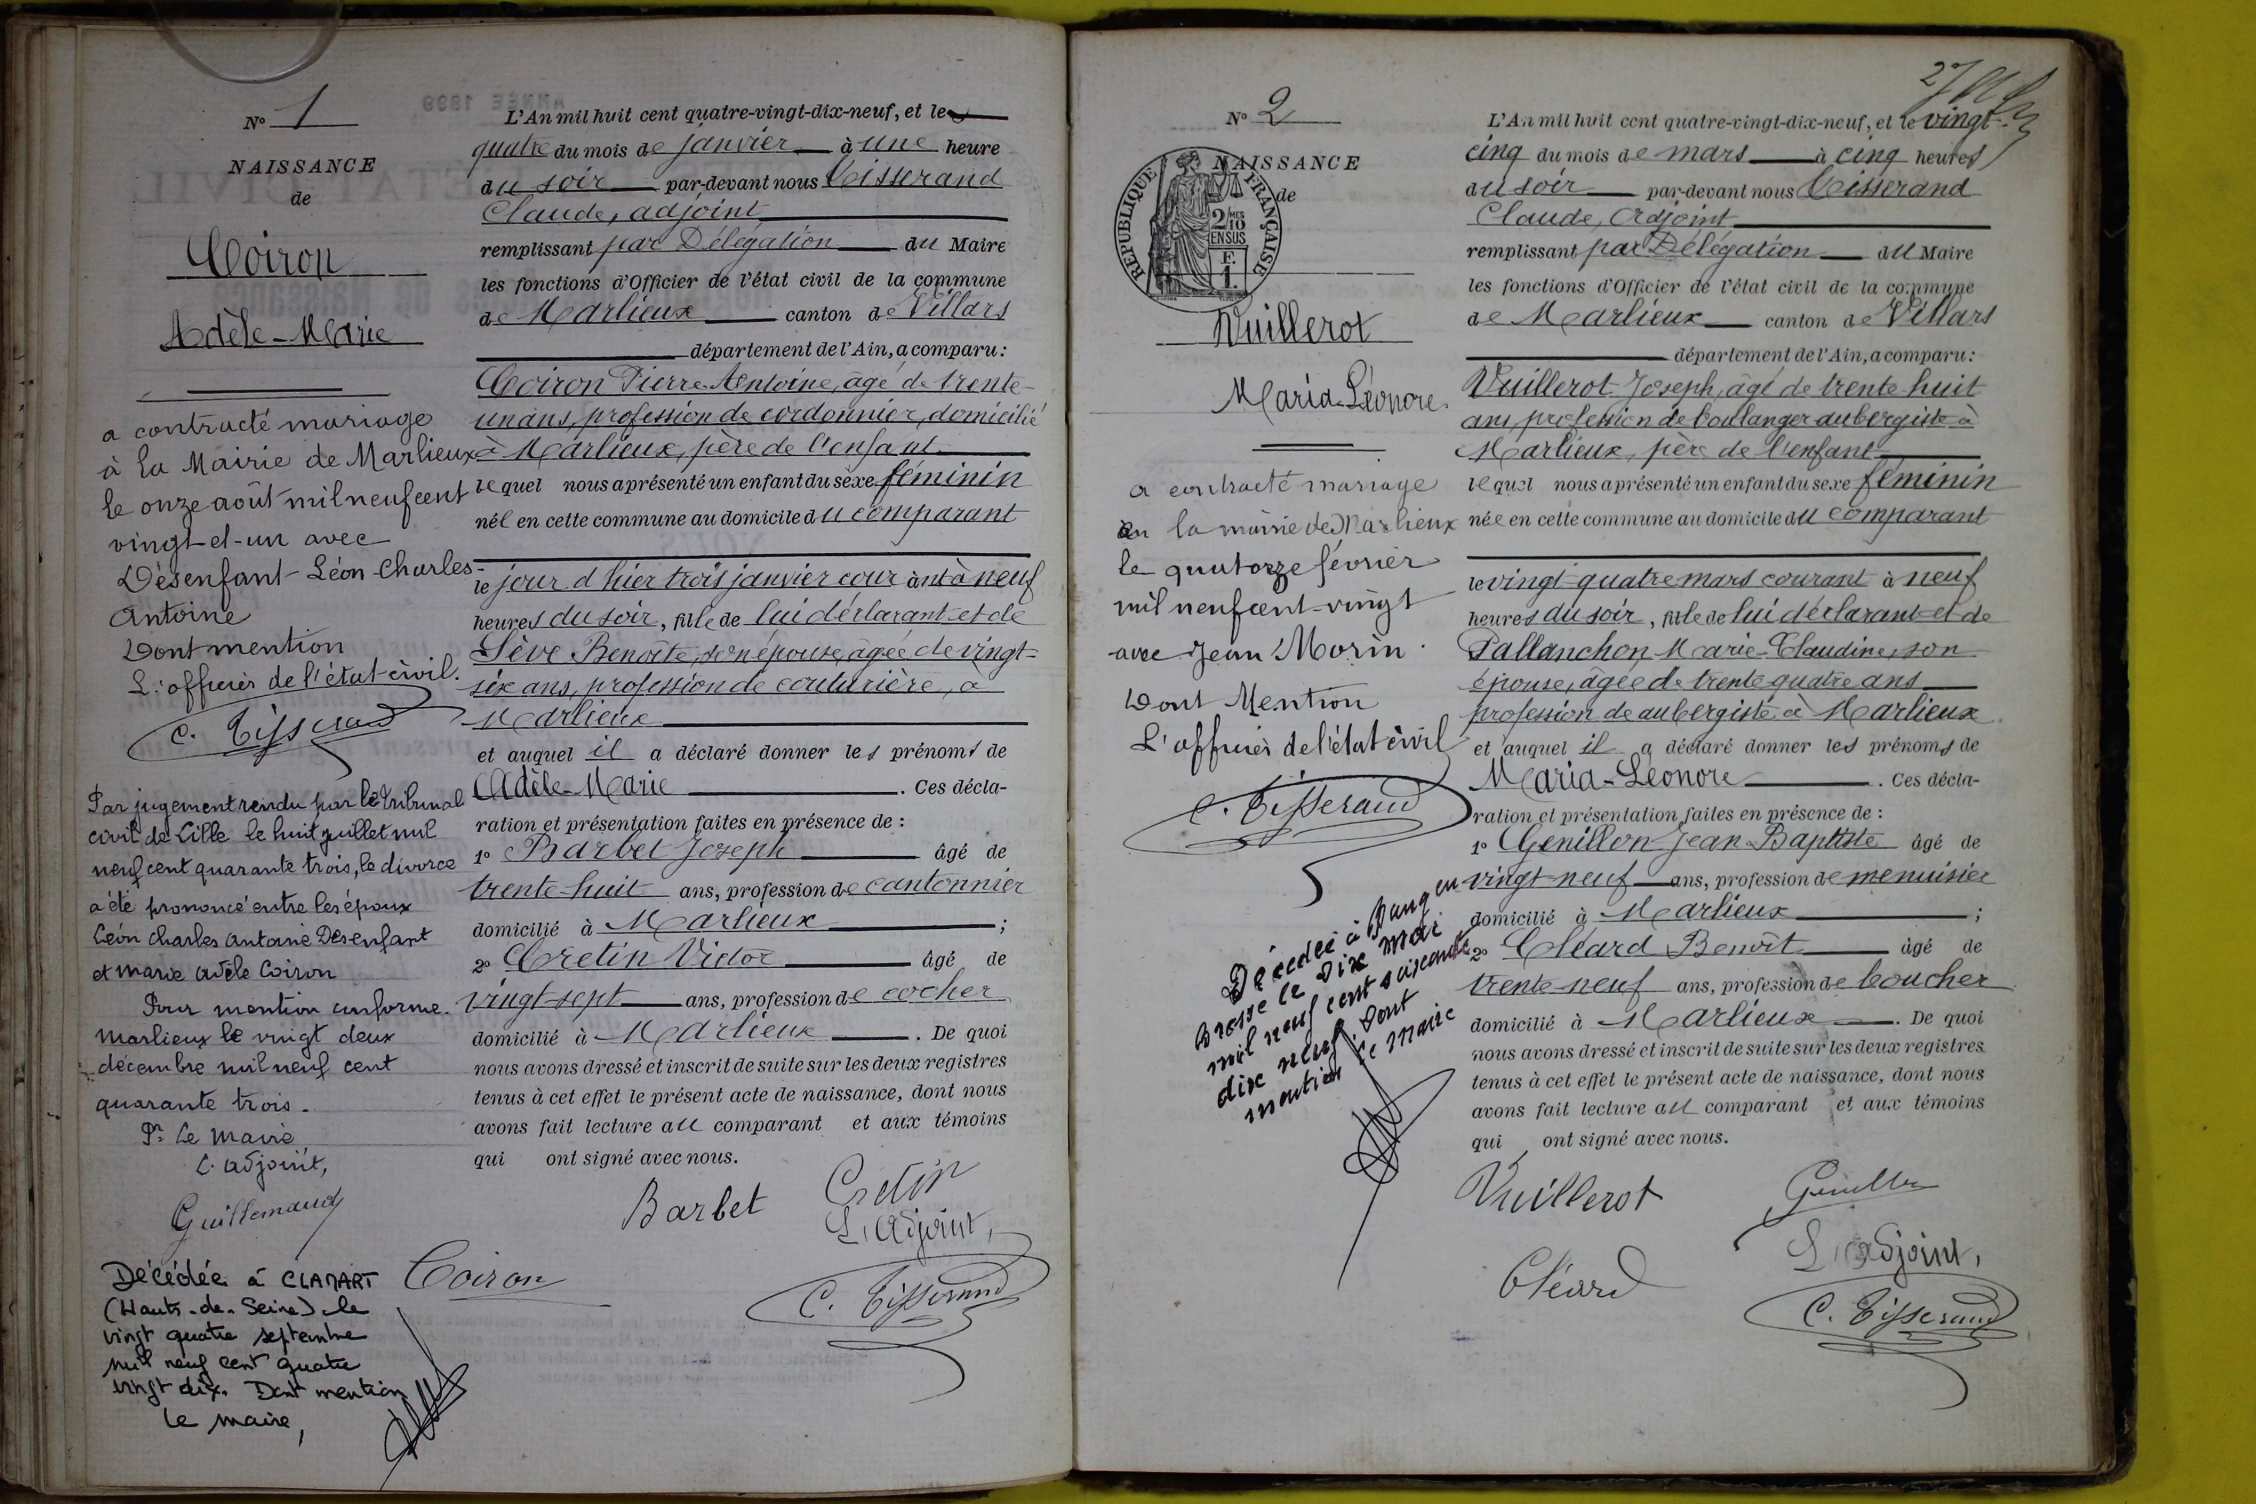 N° 1
NAISSANCE
de
Coiron
Adèle-Marie
a contracté mariage
à la Mairie de Marlieux
le onze août mil neuf cent
vingt-et-un avec
Désenfant Léon-Charles-
Antoine
Dont mention
L'officier de l'état-civil.
C. Tisserand
Par jugement rendu par le tribunal
civil de Lille le huit juillet mil
neuf cent quarante trois, le divorce
a été prononcé entre les époux
Léon Charles Antoine Desenfant
et Marie Adèle Coiron
Pour mention conforme.
Marlieux le vingt deux
décembre mil neuf cent
quarante trois.
Pr Le Maire
L'adjoint,
Guillemaud
Décédée à CLAMART
(Hauts-de-Seine) le
vingt quatre septembre
mil neuf cent quatre
vingt dix. Dont mention
le maire,
L'An mil huit cent quatre-vingt-dix-neuf, et le
quatre du mois de janvier à une heure
du soir par-devant nous Tisserand
Claude, adjoint
remplissant par Délégation du Maire
les fonctions d'Officier de l'état civil de la commune
de Marlieux canton de Villars
département de l'Ain, a comparu :
Coiron Pierre-Antoine, âgé de trente-
un ans, profession de cordonnier, domicilié
à Marlieux, père de l'enfant
lequel nous a présenté un enfant du sexe féminin
née en cette commune au domicile du comparant
le jour d'hier trois janvier courant à neuf
heures du soir, fille de lui déclarant et de
Sève Benoîte, son épouse, âgée de vingt-
six ans, profession de couturière, à
Marlieux
et auquel il a déclaré donner les prénoms de
Adèle-Marie . Ces décla-
ration et présentation faites en présence de :
1° Barbet Joseph âgé de
trente-huit ans, profession de cantonnier
domicilié à Marlieux ;
2° Cretin Victor âgé de
vingt-sept ans, profession de cocher
domicilié à Marlieux . De quoi
nous avons dressé et inscrit de suite sur les deux registres
tenus à cet effet le présent acte de naissance, dont nous
avons fait lecture au comparant et aux témoins
qui ont signé avec nous.
Barbet Cretin
L'adjoint,
Coiron
C. Tisserand
27
N° 2
NAISSANCE
de
RÉPUBLIQUE FRANÇAISE
2/10 MES
EN SUS
F.
1.
Vuillerot
Maria-Léonore
a contracté mariage
en la mairie de Marlieux
le quatorze février
mil neuf cent-vingt
avec Jean Morin.
Dont Mention
L'officier de l'état civil
C. Tisserand
Décédée à Bourg en
Bresse le dix mai
mil neuf cent soixante
dix neuf. Dont
mention le Maire
L'An mil huit cent quatre-vingt-dix-neuf, et le vingt-
cinq du mois de mars à cinq heures
du soir par-devant nous Tisserand
Claude, Adjoint
remplissant par Délégation du Maire
les fonctions d'Officier de l'état civil de la commune
de Marlieux canton de Villars
département de l'Ain, a comparu :
Vuillerot Joseph, âgé de trente huit
ans, profession de boulanger aubergiste à
Marlieux, père de l'enfant
lequel nous a présenté un enfant du sexe féminin
née en cette commune au domicile du comparant
le vingt-quatre mars courant à neuf
heures du soir, fille de lui déclarant et de
Pallanchon Marie-Claudine, son
épouse, âgée de trente quatre ans
profession de aubergiste à Marlieux
et auquel il a déclaré donner les prénoms de
Maria-Léonore . Ces décla-
ration et présentation faites en présence de :
1° Genillon Jean-Baptiste âgé de
vingt-neuf ans, profession de menuisier
domicilié à Marlieux ;
2° Cléard Benoît âgé de
trente-neuf ans, profession de boucher
domicilié à Marlieux . De quoi
nous avons dressé et inscrit de suite sur les deux registres
tenus à cet effet le présent acte de naissance, dont nous
avons fait lecture au comparant et aux témoins
qui ont signé avec nous.
Vuillerot Genillon
L'adjoint,
Cléard
C. Tisserand